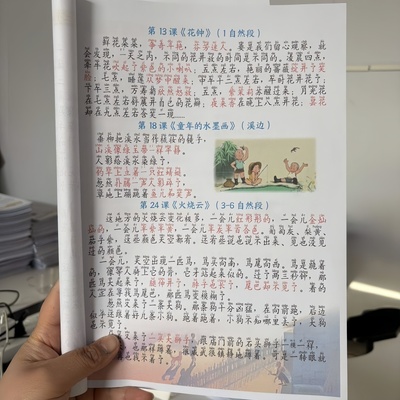 第13课《花钟》(1自然段)
鲜花朵朵,争奇斗艳,芬芳迷人。要是我们留心观察,就
会发现,一天之内,不同的花开放的时间是不同的。凌晨四点,
牵牛花吹起了紫色的小喇叭;五点左右,艳丽的蔷薇绽开了笑
脸;七点,睡莲从梦中醒来;中午十二点左右,午时花开花了;
下午三点,万寿菊欣然怒放;五点,紫茉莉苏醒过来;月光花
在七点左右舒展开自己的花瓣;夜来香在晚上八点开花;昙花
却在九点左右含笑一现……
第18课《童年的水墨画》(溪边)
垂柳把溪水当作梳妆的镜子,
山溪像绿玉带一样平静。
人影给溪水染绿了,
钓竿上立着一只红蜻蜓。
忽然扑腾一声人影碎了,
草地上蹦跳着鱼儿和笑声。
第24课《火烧云》(3-6自然段)
这地方的火烧云变化极多,一会儿红彤彤的,一会儿金灿
灿的,一会儿半紫半黄,一会儿半灰半百合色。葡萄灰、梨黄、
茄子紫,这些颜色天空都有。还有些说也说不出来、见也没见
过的颜色。
一会儿,天空出现一匹马,马头向南,马尾向西。马是跪着
的,像等人骑上它的背,它才站起来似的。过了两三秒钟,那匹
马大起来了,腿伸开了,脖子也长了,尾巴却不见了。看的
人正在寻找马尾巴,那匹马变模糊了。
忽然又来了一条大狗。那条狗十分凶猛,在向前跑,后边
似乎还跟着好几条小狗。跑着跑着,小狗不知哪里去了,大狗
也不见了。
又来了一头大狮子,跟庙门前的石头狮子一模一样,
也那么大,也那样蹲着,很威武很镇静地蹲着。可是一转眼就